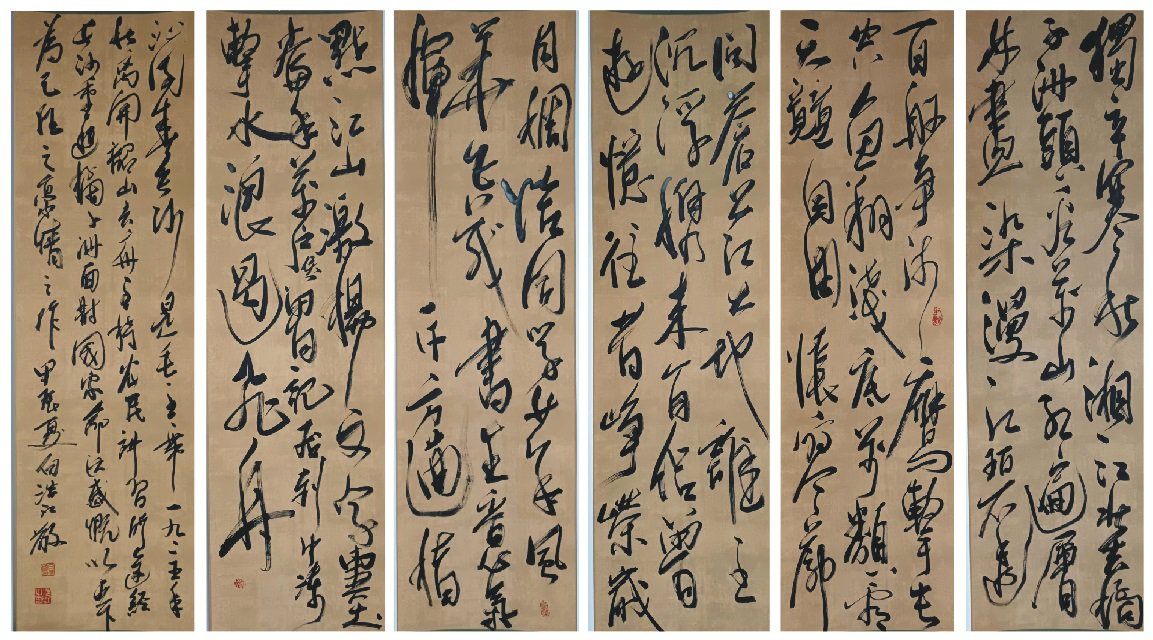 獨立寒秋湘江北去橘
子洲頭看萬山紅遍層
林盡染漫江碧透
百舸爭流鷹擊長
空魚翔淺底萬類霜
天競自由悵寥廓
問蒼茫大地誰主
沉浮攜來百侶曾
遊憶往昔崢嶸歲
月稠恰同學少年風
華正茂書生意氣
揮斥方遒指
點江山激揚文字糞土
當年萬戶侯曾記否到中流
擊水浪遏飛舟
沁園春長沙是毛主席一九二五年
秋離開韶山去廣州主持農民講習所途經
長沙重遊橘子洲面對國家感慨以天下
為己任之豪情之作甲辰夏伯浩敬